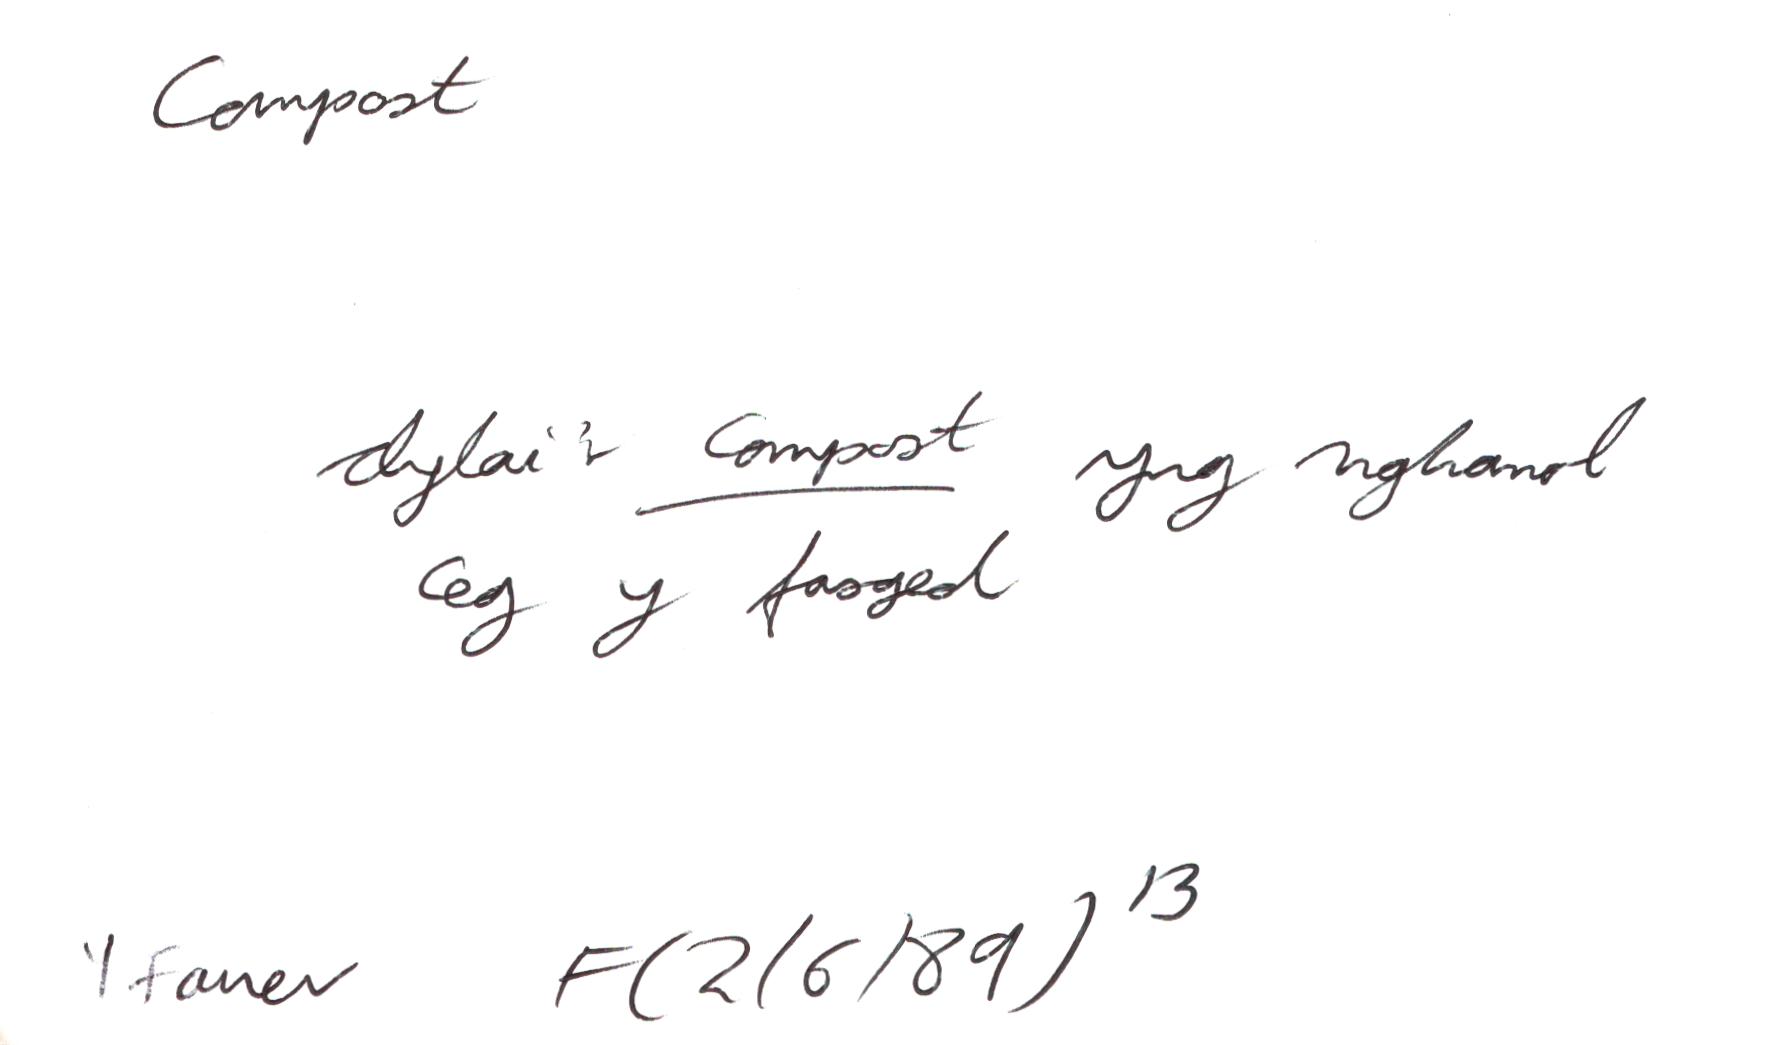 Compost
dylai'r compost yng nghanol
ceg y fasged
Y Faner F(2/6/89) 13